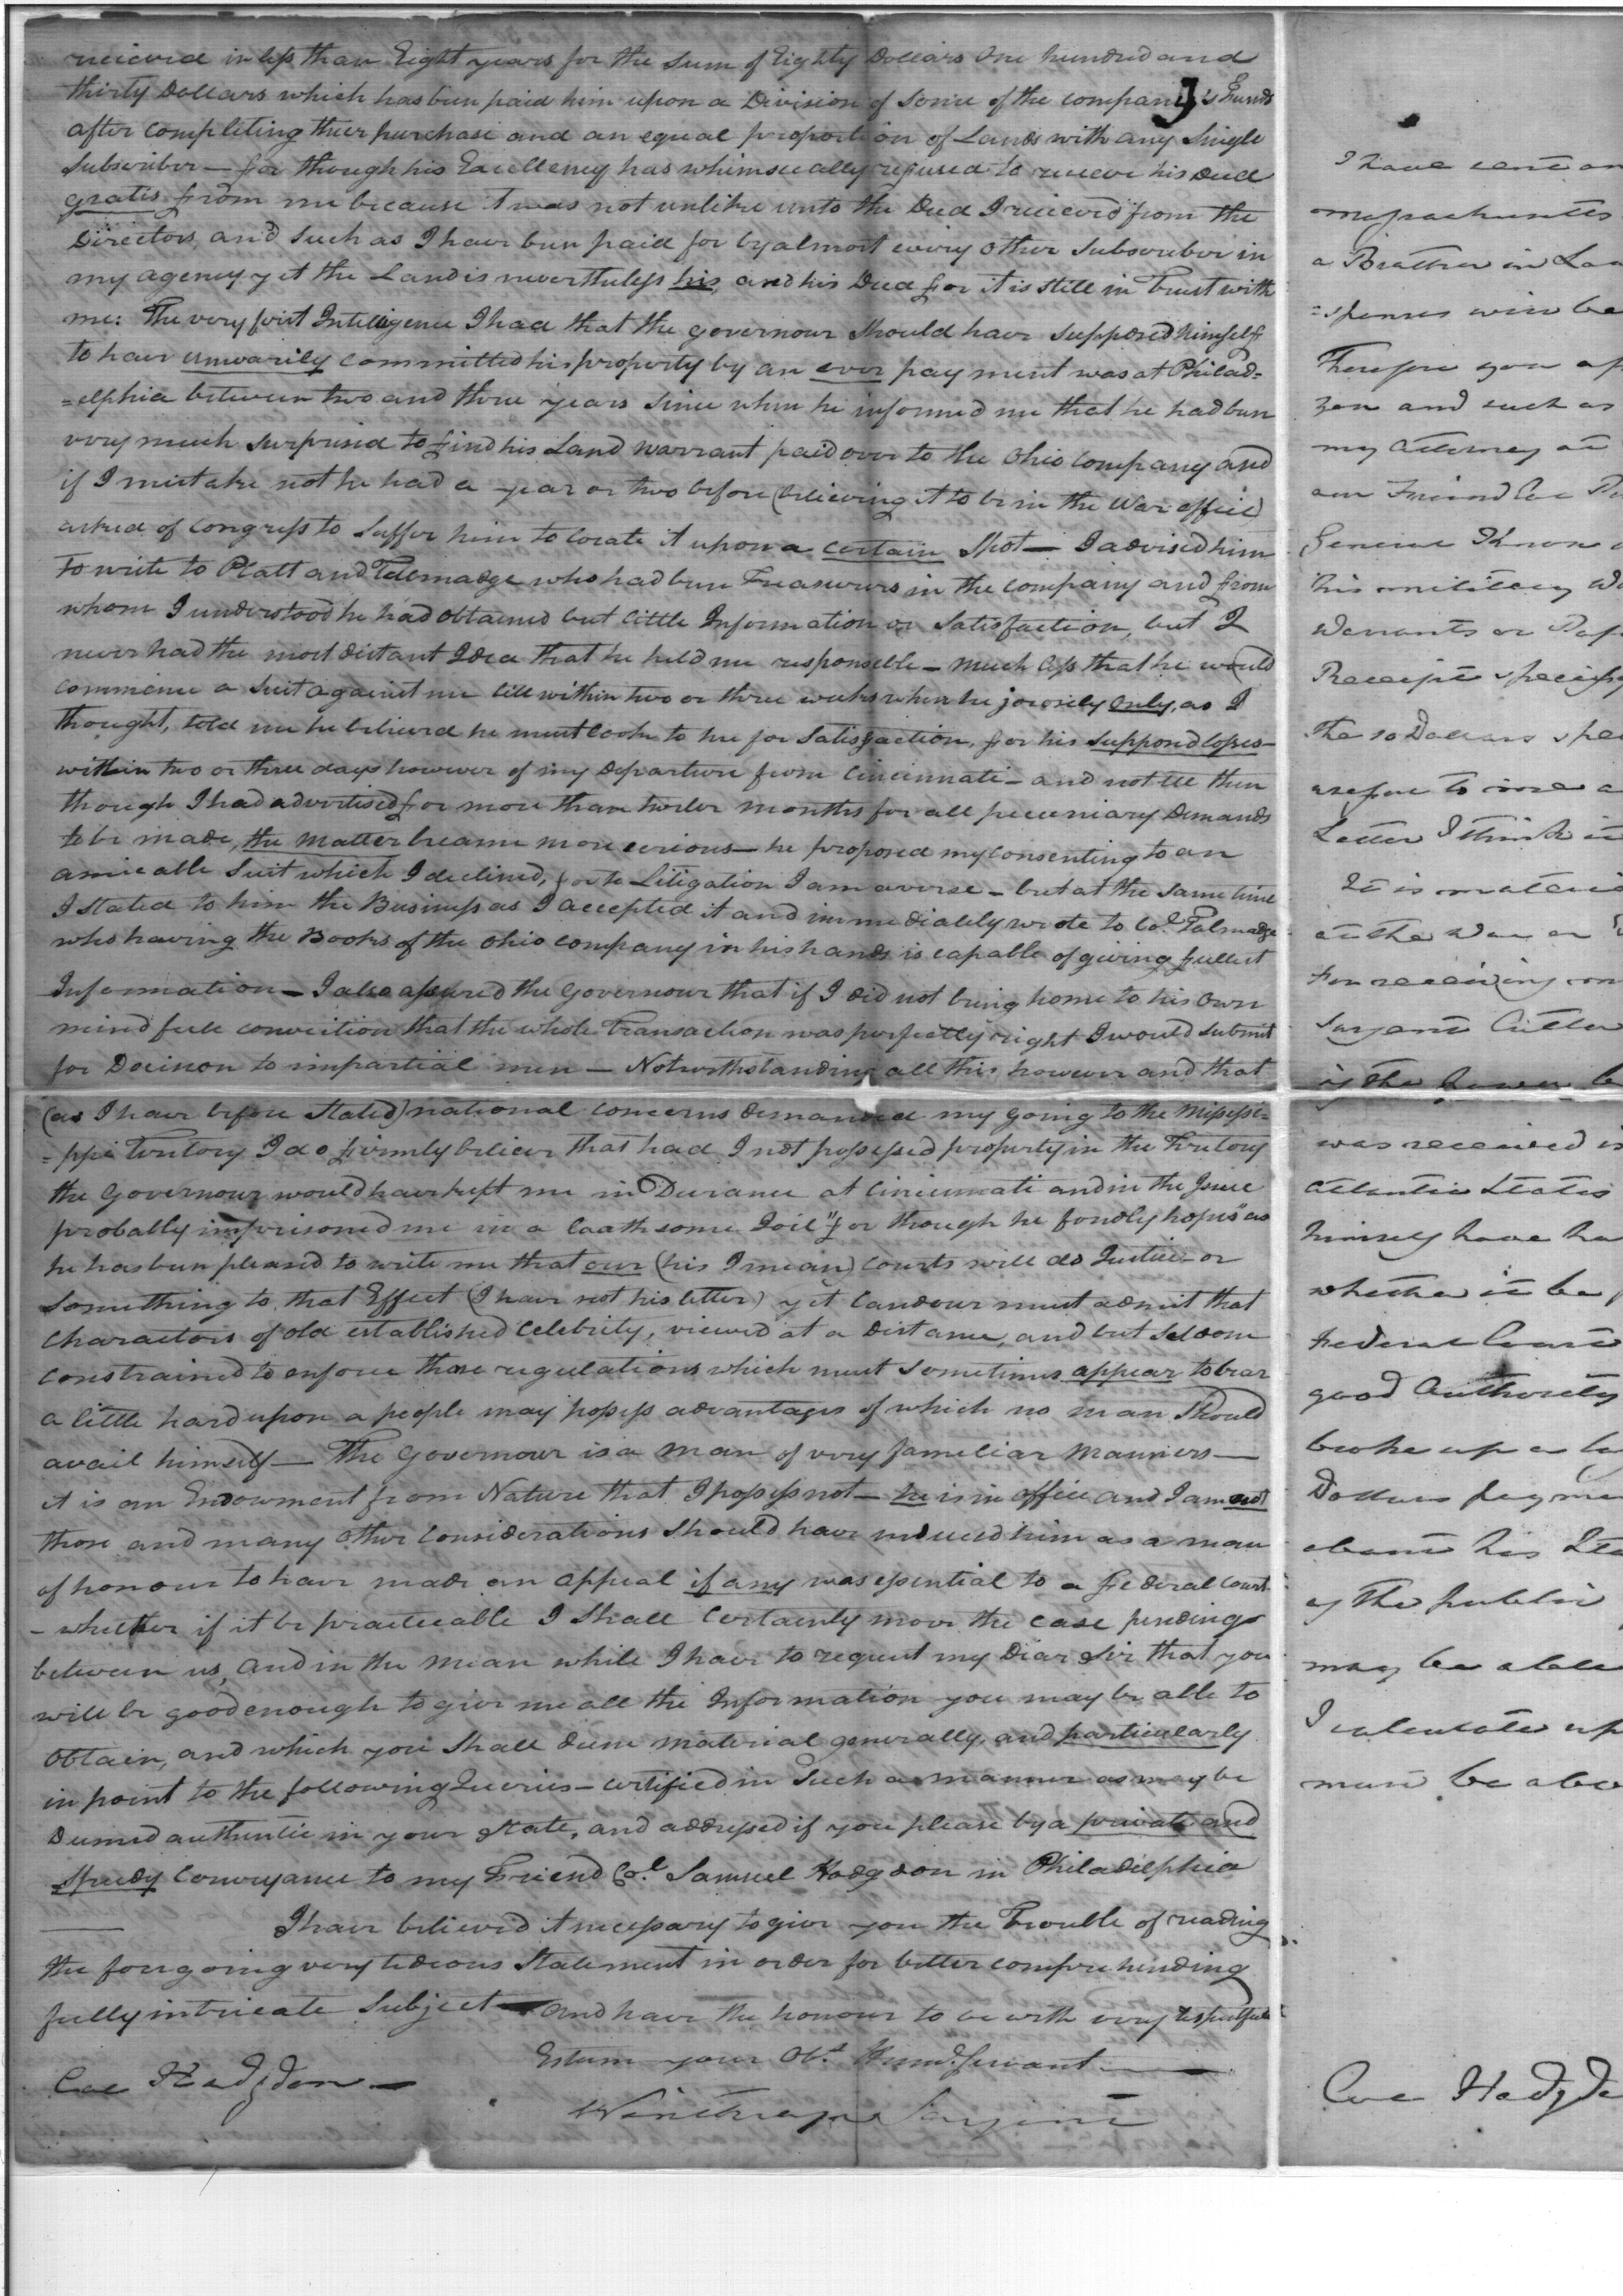 received in less than Eight years for the sum of Eighty Dollars One hundred and
thirty Dollars which has been paid him upon a Division of some of the company's Funds
after completing their purchase and an equal proportion of Lands with any Single
Subscriber — for though his Excellency has whimsically refused to receive his Deed
gratis from me because it was not unlike unto the Deed I received from the
Directors, and such as I have been paid for by almost every other Subscriber in
my agency yet the Land is nevertheless his, and his Deed for it is still in Trust with
me: The very first Intelligence I had that the governour should have supposed himself
to have unwarily committed his property by an over payment was at Philad=
=elphia between two and three years since when he informed me that he had been
very much surprised to find his Land Warrant paid over to the Ohio Company and
if I mistake not he had a year or two before (believing it to be in the War office)
asked of Congress to suffer him to locate it upon a certain Spot — I advised him
to write to Platt and Talmadge who had been Treasurers in the company and from
whom I understood he had obtained but little Information or Satisfaction, but I
never had the most distant Idea that he held me responsible — much less that he would
commence a Suit against me till within two or three weeks when he jocosely only, as I
thought, told me he believed he must look to me for Satisfaction, for his supposed losses —
within two or three days however of my Departure from Cincinnati — and not till then
though I had advertised for more than twelve months for all pecuniary Demands
to be made, the matter became more serious — he proposed my consenting to an
amicable Suit which I declined, for to Litigation I am averse — but at the same time
I stated to him the Business as I accepted it and immediately wrote to Col. Talmadge
who having the Books of the Ohio Company in his hands is capable of giving fullest
Information — I also assured the Governour that if I did not bring home to his own
mind full conviction that the whole Transaction was perfectly right I would submit
for Decision to impartial men — Notwithstanding all this however and that
(as I have before Stated) national concerns demanded my going to the Mississi=
=ppi Territory I do firmly believe that had I not possessed property in the Territory
the Governour would have kept me in Durance at Cincinnati and in the Issue
probably imprisoned me in a loathsome Goil "for though he fondly hopes" as
he has been pleased to write me that our (his I mean) Courts will do Justice — or
something to that Effect (I have not his letter) yet Candour must admit that
Charactors of old established Celebrity, viewed at a Distance, and but seldom
constrained to enforce those regulations which must sometimes appear to bear
a little hard upon a people may possess advantages of which no man should
avail himself — The Governour is a man of very familiar Manners —
it is an Endowment from Nature that I possess not — he is in office and I am not
those and many other considerations should have induced him as a man
of honour to have made an appeal if any was essential to a federal Court
- whether if it be practicable I shall Certainly move the case pending
between us, and in the mean while I have to request my Dear Sir that you
will be good enough to give me all the Information you may be able to
Obtain, and which you shall deem material generally, and particularly
in point to the following Queries — certified in such a manner as may be
Deemed authentic in your State, and addressed if you please by a private and
Speedy Conveyance to my Friend Col. Samuel Hodgdon in Philadelphia
I have believed it necessary to give you the Trouble of reading
the foregoing very tedious Statement in order for better comprehending
fully intricate Subject — and have the honour to be with very respectfull
Esteem your Obt. Humb. Servant —
Col Hodgdon —
Winthrop Sargent
I have sent
a Brother in Law
Therefore you
zen and such as
my Attorney at
General Knox
his military
Warrants or
Receipts specify
the 10 Dollars
Letter I think it
It is material
at the War or
for receiving
Sargent Cutler
was received
Atlantic States
himself have
whether it be
Federal Court
good Authority
broke up
Dollars payme
of the public
may be able
I calculate up
must be
Col Hodgd